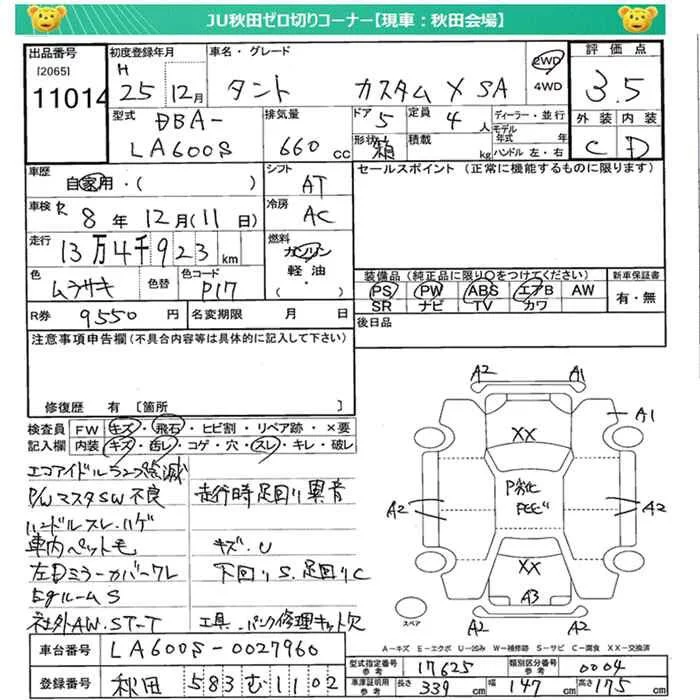 JU秋田ゼロ切りコーナー【現車：秋田会場】
出品番号
[2065]
11014
初度登録年月
H
25 12月
車名・グレード
タント カスタム X SA
2WD
4WD
評価点
3.5
外装 内装
C D
型式
DBA-
LA600S
排気量
660 cc
ドア
5
定員
4 人
形状
箱
積載
kg
ディーラー・並行
モデル年式 年
ハンドル 左・右
車歴
自家用・( )
シフト
AT
セールスポイント (正常に機能するものに限ります)
車検 R 8年 12月(11日)
冷房
AC
走行
13万4千923km
燃料
ガソリン
軽油・
( )
色
ムラサキ
色替
色コード
P17
装備品(純正品に限り○をつけてください)
新車保証書
PS PW ABS エアB AW
SR ナビ TV カワ
有・無
R券 9550円
名変期限 月 日
後日品
注意事項申告欄(不具合内容等は具体的に記入して下さい)
修復歴 有 [箇所 ]
検査員記入欄
FW キズ・飛石・ヒビ割・リペア跡・×要
内装 キズ・汚レ・コゲ・穴・スレ・キレ・破レ
エコアイドルランプ点滅
P/WマスタSW不良 走行時足回り異音
ハンドルスレ.ハゲ
車内ペット毛 キズ.U
左Dミラーカバーワレ 下回りS.足回りC
EgルームS
社外AW.ST-T 工具.パンク修理キット欠
A2 A1
A1
XX
P劣化
A2 A2
XX
A3
A2 A2
スペア
A－キズ E－エクボ U－凹み W－補修跡 S－サビ C－腐食 XX－交換済
車台番号 LA600S-0027960
登録番号 秋田 583 む 1102
型式指定番号
参考
17625
類別区分番号
参考
0004
車庫証明用
参考
長さ 339cm 幅 147cm 高さ 175cm